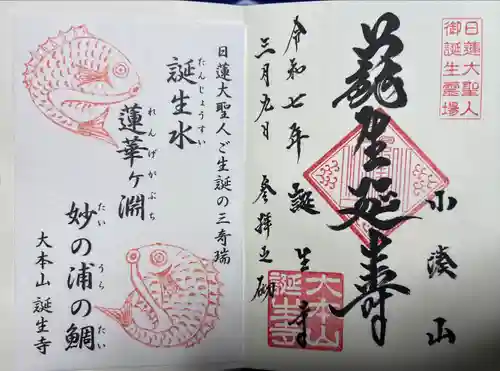 日蓮大聖人
御誕生霊場
小湊山
延壽
令和七年 誕生寺
三月九日 参拝之砌
大本山
誕生寺
日蓮大聖人ご生誕の三奇瑞
誕生水
たんじょうすい
蓮華ヶ淵
れんげがぶち
妙の浦の鯛
たいうらたい
大本山 誕生寺